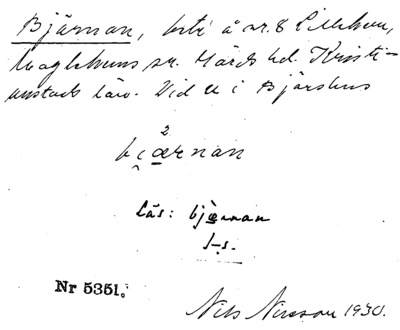 Bjärnan, bete å nr. 8 Lillehem,
Maglehems sn. Gärds hd. Kristi-
anstads län. Vid A i Bjärshus
2
bi̯ærnan
Läs: bjærnan
I-s.
Nr 5351.
Nils Nilsson 1930.